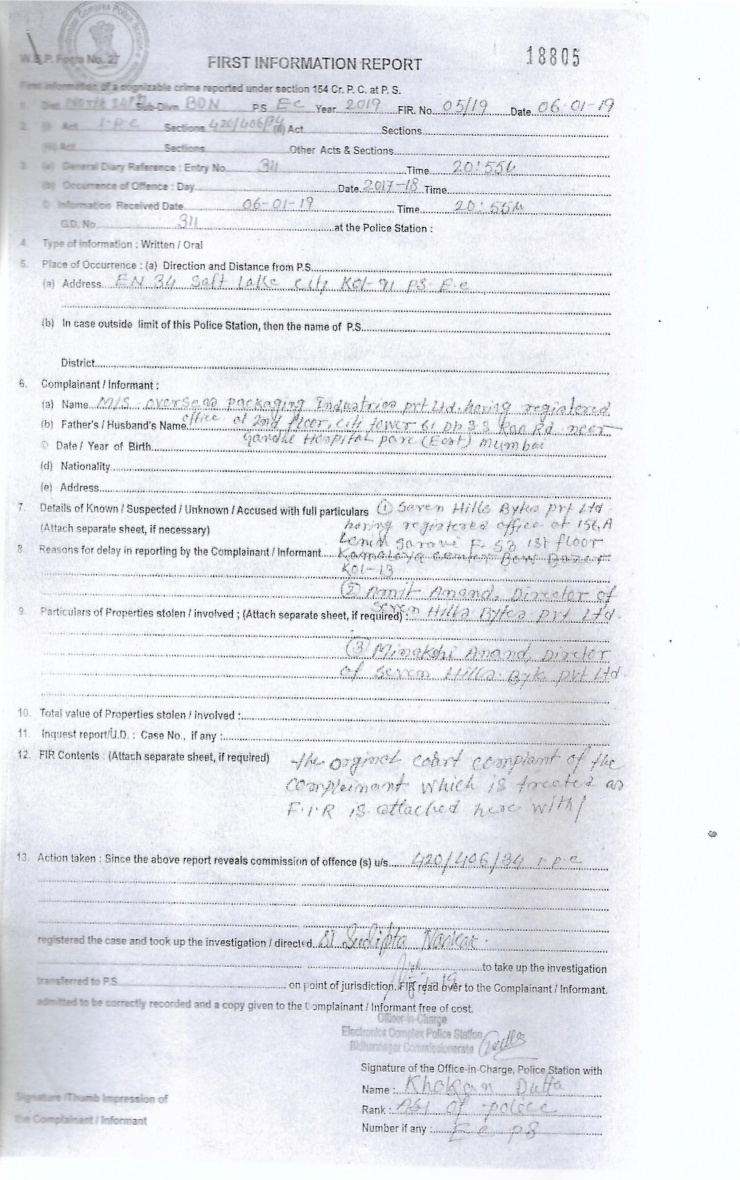 W.B.P. Form No. 27
18805
FIRST INFORMATION REPORT
First Information of a cognizable crime reported under section 154 Cr. P. C. at P. S.
1. Dist. North 24 Sub-Divn. BDN P.S. EC Year 2019 FIR. No. 05/19 Date 06-01-19
2. (i) Act I.P.C Sections 420/406/34 (ii) Act Sections
(iii) Act Sections Other Acts & Sections
3. (a) General Diary Reference : Entry No. 311 Time 20:55h
(b) Occurrence of Offence : Day Date 2017-18 Time
© Information Received Date 06-01-19 Time 20:55h
G.D. No. 311 at the Police Station :
4. Type of information : Written / Oral
5. Place of Occurrence : (a) Direction and Distance from P.S.
(a) Address EN 34 Salt Lake City Kol-91 PS-E.c
(b) In case outside limit of this Police Station, then the name of P.S.
District
6. Complainant / Informant :
(a) Name M/S. overseas packaging Industries pvt Ltd. having registered
(b) Father's / Husband's Name office at 2nd floor, city tower 61 DR S.S Rao Rd near
Gandhi Hospital parc (East) Mumbai
© Date / Year of Birth
(d) Nationality
(e) Address
7. Details of Known / Suspected / Unknown / Accused with full particulars (1) Seven Hills Bykes pvt Ltd
(Attach separate sheet, if necessary) having registered office at 156A
Lenin Sarani F-53 1st floor
8. Reasons for delay in reporting by the Complainant / Informant Kamalaya center Bow Bazar
Kol-13
(2) Amit Anand, Director of
9. Particulars of Properties stolen / involved ; (Attach separate sheet, if required) : Seven Hills Bykes pvt Ltd.
(3) Minakshi Anand, Dirctor
of Seven Hills Byke pvt Ltd
10. Total value of Properties stolen / involved :
11. Inquest report/U.D. : Case No., if any :
12. FIR Contents : (Attach separate sheet, if required) the orginal court complaint of the
complainant which is treated as
F.I.R is attached here with/
13. Action taken : Since the above report reveals commission of offence (s) u/s. 420/406/34 I.P.C
registered the case and took up the investigation / directed SI Sudipta Naskar.
to take up the investigation
transferred to P.S. on point of jurisdiction. FIR read over to the Complainant / Informant.
admitted to be correctly recorded and a copy given to the Complainant / Informant free of cost.
Officer-in-Charge
Electronics Complex Police Station
Bidhannagar Commissionerate
Signature of the Office-in-Charge, Police Station with
Name : Khokan Dutta
Signature /Thumb Impression of
Rank : ASI of police
the Complainant / Informant
Number if any : Ec PS